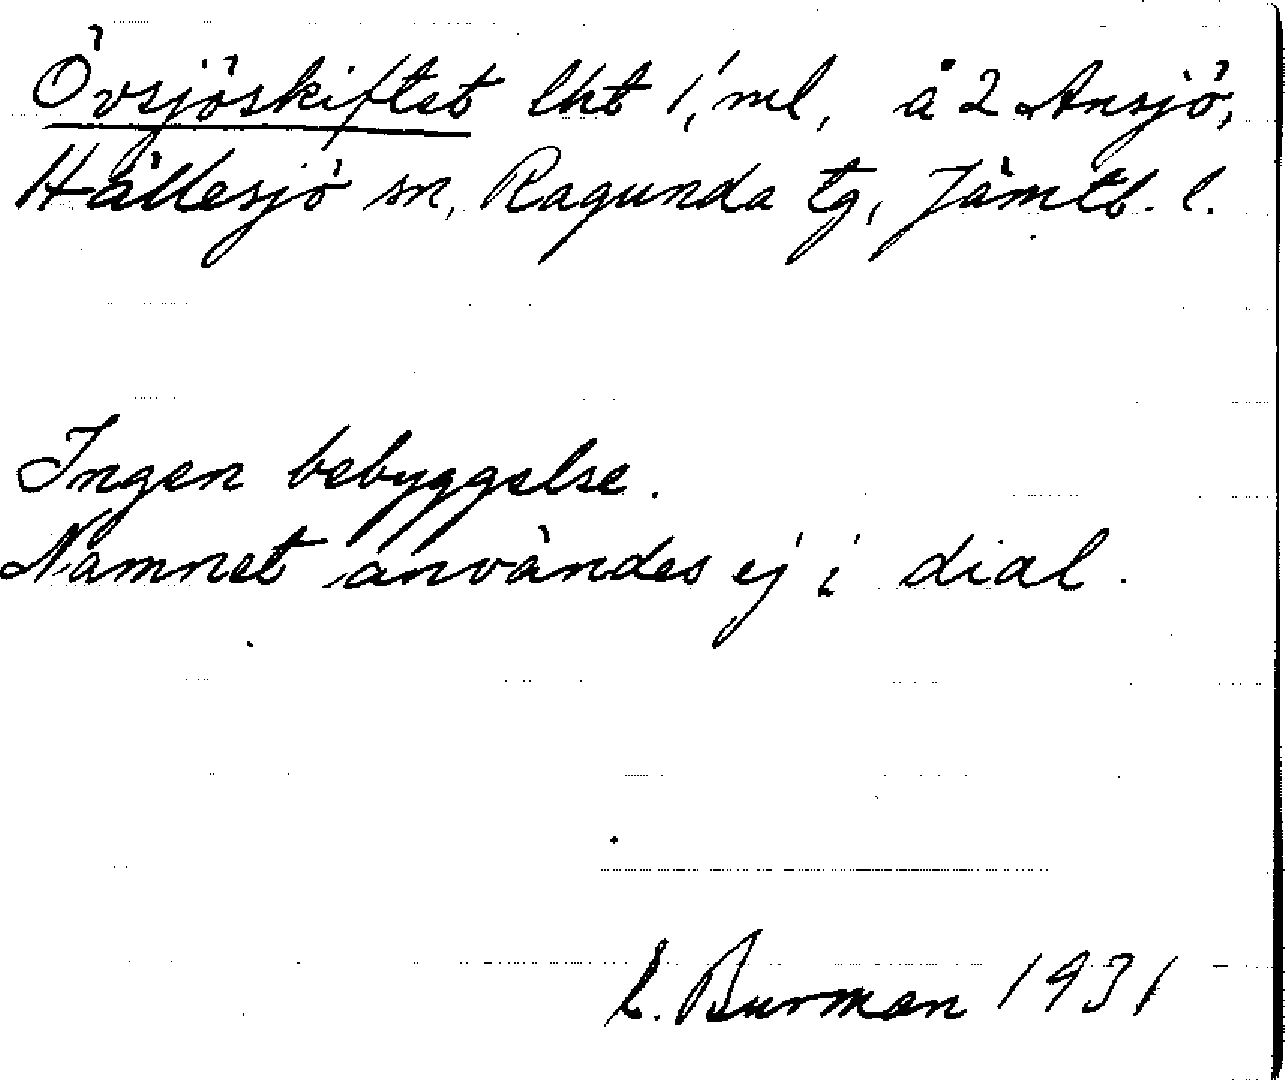 Övsjöskiftet lht 1, ml, å 2 Ansjö,
Hällesjö sn, Ragunda tg, Jämtl. l.
Ingen bebyggelse.
Namnet användes ej i dial.
L. Burman 1931